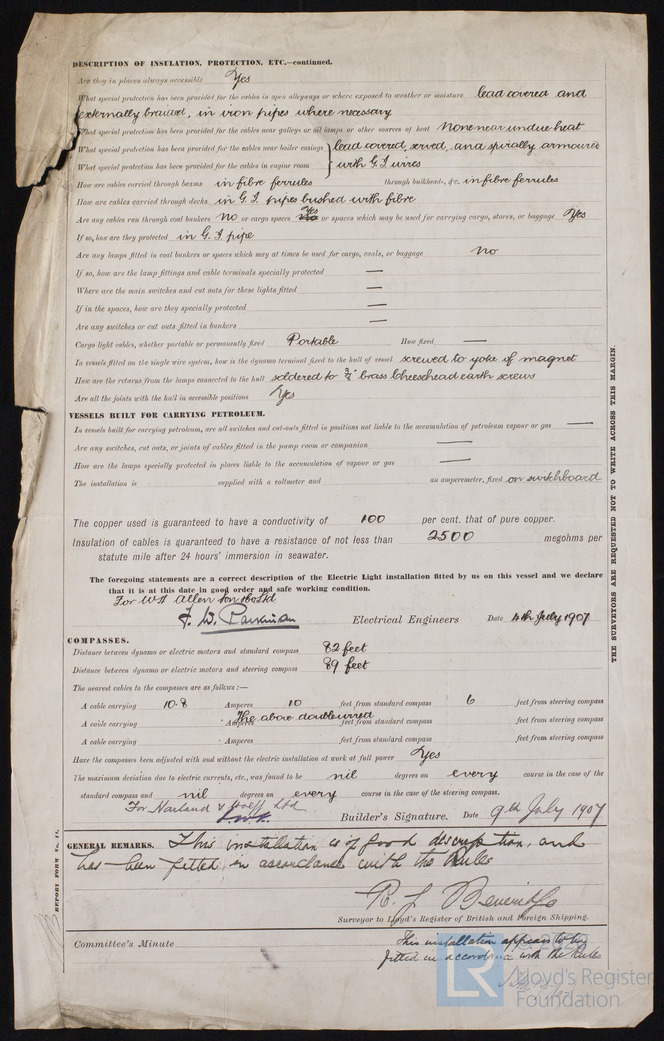 DESCRIPTION OF INSULATION, PROTECTION, ETC.—continued.
Are they in places always accessible Yes
What special protection has been provided for the cables in open alleyways or where exposed to weather or moisture lead covered and
externally braided, in iron pipes where necessary
What special protection has been provided for the cables near galleys or oil lamps or other sources of heat None near undue heat
What special protection has been provided for the cables near boiler casings lead covered, served, and spirally armoured
What special protection has been provided for the cables in engine room with G.I wires
How are cables carried through beams in fibre ferrules through bulkheads, &c. in fibre ferrules
How are cables carried through decks in G.I pipes bushed with fibre
Are any cables run through coal bunkers No or cargo spaces Yes No or spaces which may be used for carrying cargo, stores, or baggage Yes
If so, how are they protected in G.I pipe
Are any lamps fitted in coal bunkers or spaces which may at times be used for cargo, coals, or baggage No
If so, how are the lamp fittings and cable terminals specially protected —
Where are the main switches and cut outs for these lights fitted —
If in the spaces, how are they specially protected —
Are any switches or cut outs fitted in bunkers —
Cargo light cables, whether portable or permanently fixed Portable How fixed —
In vessels fitted on the single wire system, how is the dynamo terminal fixed to the hull of vessel screwed to yoke of magnet
How are the returns from the lamps connected to the hull soldered to ¾" brass Cheesehead earth screws
Are all the joints with the hull in accessible positions Yes
VESSELS BUILT FOR CARRYING PETROLEUM.
In vessels built for carrying petroleum, are all switches and cut-outs fitted in positions not liable to the accumulation of petroleum vapour or gas —
Are any switches, cut outs, or joints of cables fitted in the pump room or companion —
How are the lamps specially protected in places liable to the accumulation of vapour or gas —
The installation is supplied with a voltmeter and an amperemeter, fixed on switchboard
The copper used is guaranteed to have a conductivity of 100 per cent. that of pure copper.
Insulation of cables is guaranteed to have a resistance of not less than 2500 megohms per
statute mile after 24 hours' immersion in seawater.
The foregoing statements are a correct description of the Electric Light installation fitted by us on this vessel and we declare
that it is at this date in good order and safe working condition.
For W.H. Allen Son & Co Ltd
F. W. Parkinson Electrical Engineers Date 4th July 1907
COMPASSES.
Distance between dynamo or electric motors and standard compass 82 feet
Distance between dynamo or electric motors and steering compass 89 feet
The nearest cables to the compasses are as follows:—
A cable carrying 10.8 Amperes 10 feet from standard compass 6 feet from steering compass
A cable carrying Amperes The above double wired feet from standard compass feet from steering compass
A cable carrying Amperes feet from standard compass feet from steering compass
Have the compasses been adjusted with and without the electric installation at work at full power Yes
The maximum deviation due to electric currents, etc., was found to be nil degrees on every course in the case of the
standard compass and nil degrees on every course in the case of the steering compass.
For Harland & Wolff Ltd
Builder's Signature. Date 9th July 1907
GENERAL REMARKS. This installation is of good description, and
has been fitted in accordance with the Rules
R. J. Beveridge
Surveyor to Lloyd's Register of British and Foreign Shipping.
Committee's Minute
This installation appears to be
fitted in accordance with the Rules
THE SURVEYORS ARE REQUESTED NOT TO WRITE ACROSS THIS MARGIN.
REPORT FORM No. 11.
LR
Lloyd's Register
Foundation